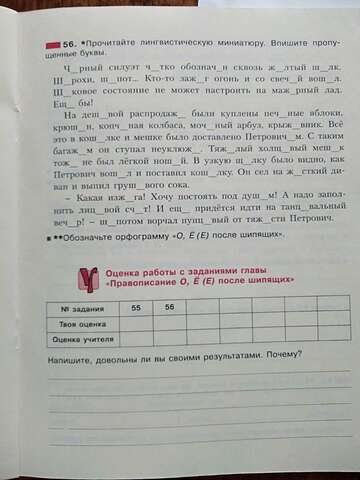 56. *Прочитайте лингвистическую миниатюру. Впишите пропу-
щенные буквы.
Ч__рный силуэт ч__тко обозначен__н сквозь ж__лтый ш__лк.
Ш__рохи, ш__пот... Кто-то заж__г огонь и со свеч__й вош__л.
Ш__ковое состояние не может настроить на маж__рный лад.
Ещ__ бы!
На деш__вой распродаж__ были куплены печ__ные яблоки,
крюш__н, конч__ная колбаса, моч__ный арбуз, крыж__вник. Всё
это в кош__лке и мешке было доставлено Петрович__м. С таким
багаж__м он ступал неуклюж__. Тяж__лый холщ__вый меш__к
тож__ не был лёгкой нош__й. В узкую щ__лку было видно, как
Петрович вош__л и поставил кош__лку. Он сел на ж__сткий ди-
ван и выпил груш__вого сока.
– Какая изж__га! Хочу постоять под душ__м! А надо запол-
нить лиц__вой сч__т! И ещ__ придётся идти на танц__вальный
веч__р! – ш__потом ворчал пунц__вый от тяж__сти Петрович.
**Обозначьте орфограмму «О, Ё (Е) после шипящих».
Оценка работы с заданиями главы
«Правописание О, Ё (Е) после шипящих»
№ задания 55 56
Твоя оценка
Оценка учителя
Напишите, довольны ли вы своими результатами. Почему?